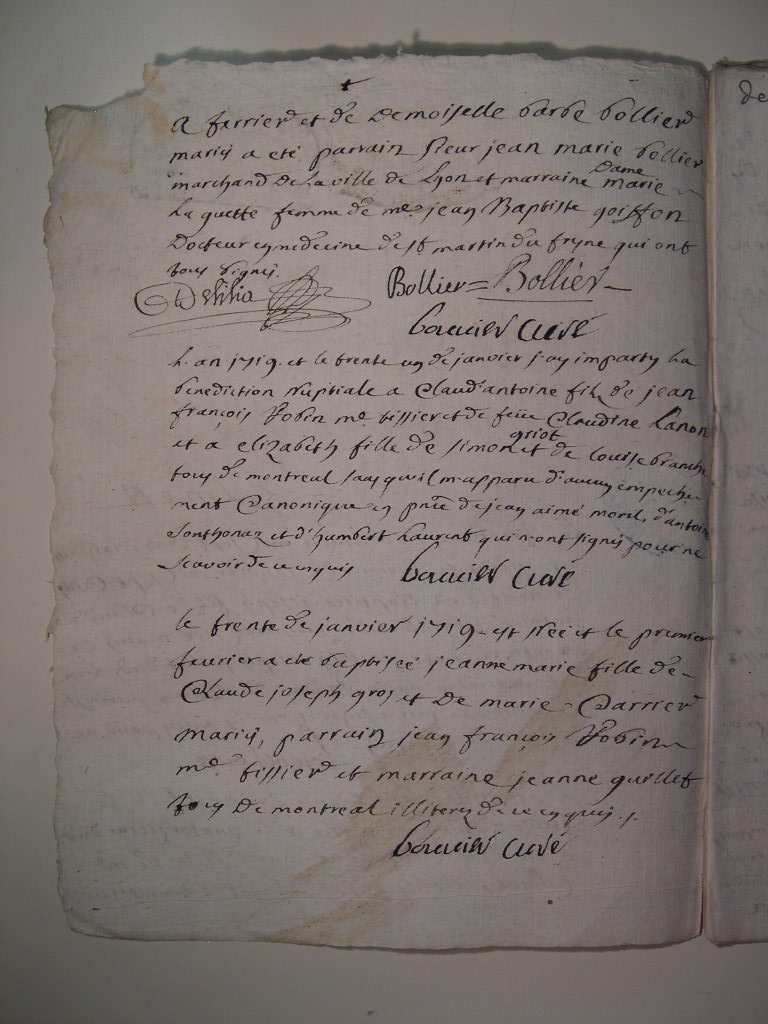 a ferrier et de Demoiselle barbe bollier
mariés a eté parrain sieur jean marie bollier
marchand de la ville de Lyon et marraine Dame marie
La guette femme de me jean Baptiste goiffon
Docteur en medecine de st martin du fresne qui ont
tous signés.
Delilia Bollier = Bollier
bouvier Curé
L'an 1719. et le trente un de janvier j'ay imparty La
benediction Nuptiale a Claud'antoine fils de jean
françois Robin me tissier et de feüe Claudine Lanon
et a elizabeth fille de simon griot et de Louise branche
tous de montreal sans qu'il m'apparu d'aucun empeche-
ment Canonique en pnce de jean aimé morel, d'antoine
Sonthonaz et d'humbert Laurent qui n'ont signés pour ne
scavoir de ce enquis bouvier Curé
Le trente de janvier 1719. est née et le premier
fevrier a eté baptisée jeanne marie fille de
Claude joseph gros et De marie Carrier
mariés, parrain jean françois Robin
me tissier et marraine jeanne quillet
tous De montreal illiteres de ce enquis.
bouvier Curé
de